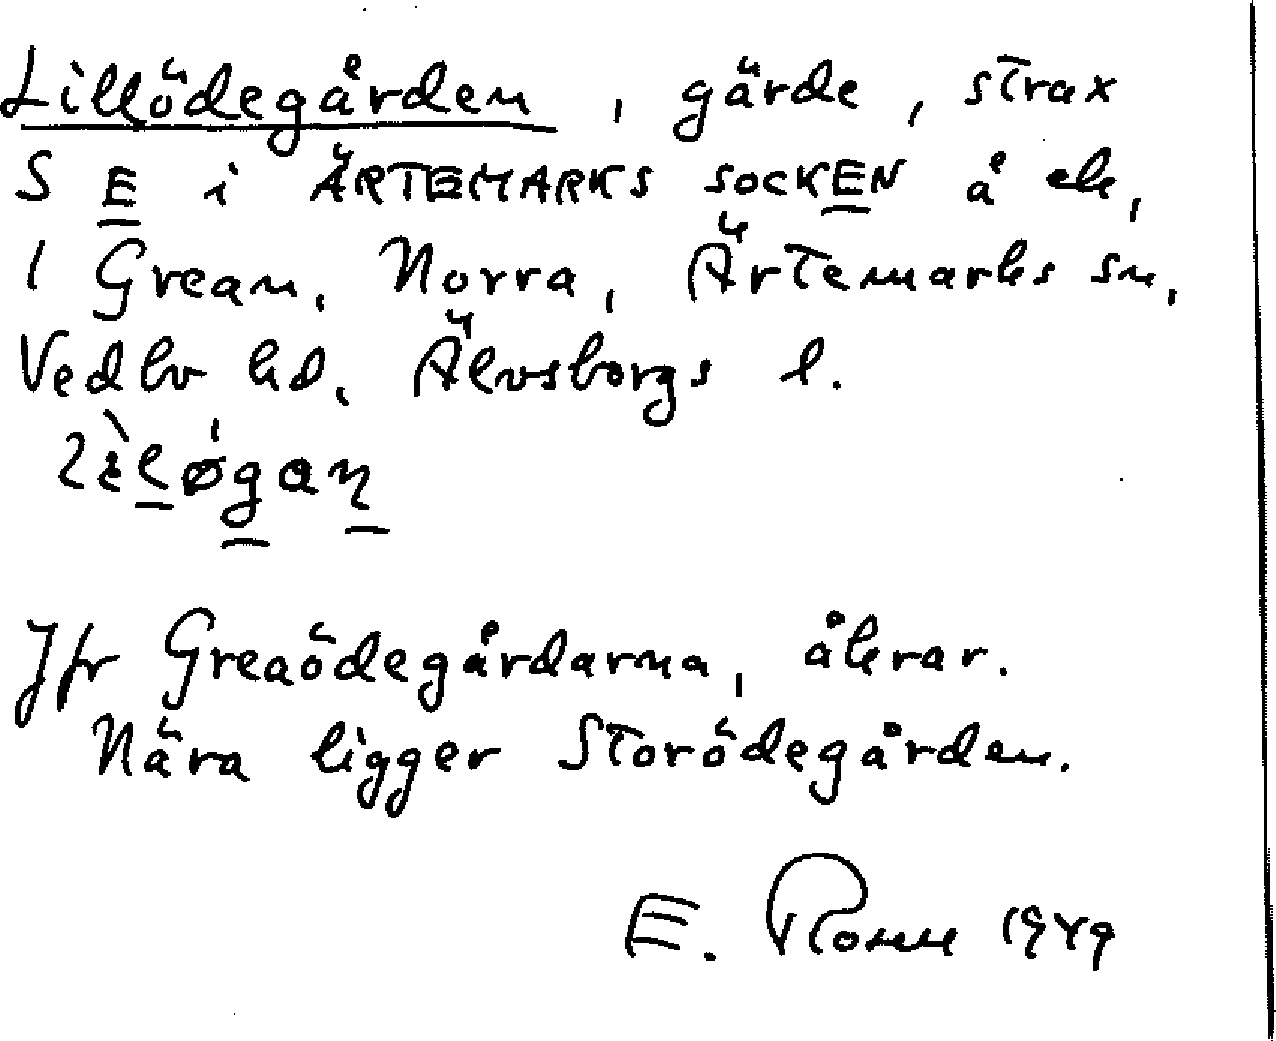 Lillödegården, gärde, strax
S E i ÄRTEMARKS SOCKEN å ek,
1 Grean, Norra, Ärtemarks sn,
Vedbo hd, Älvsborgs l.
Jfr Greaödegårdarna, åkrar.
Nära ligger Storödegården.
E. 1949